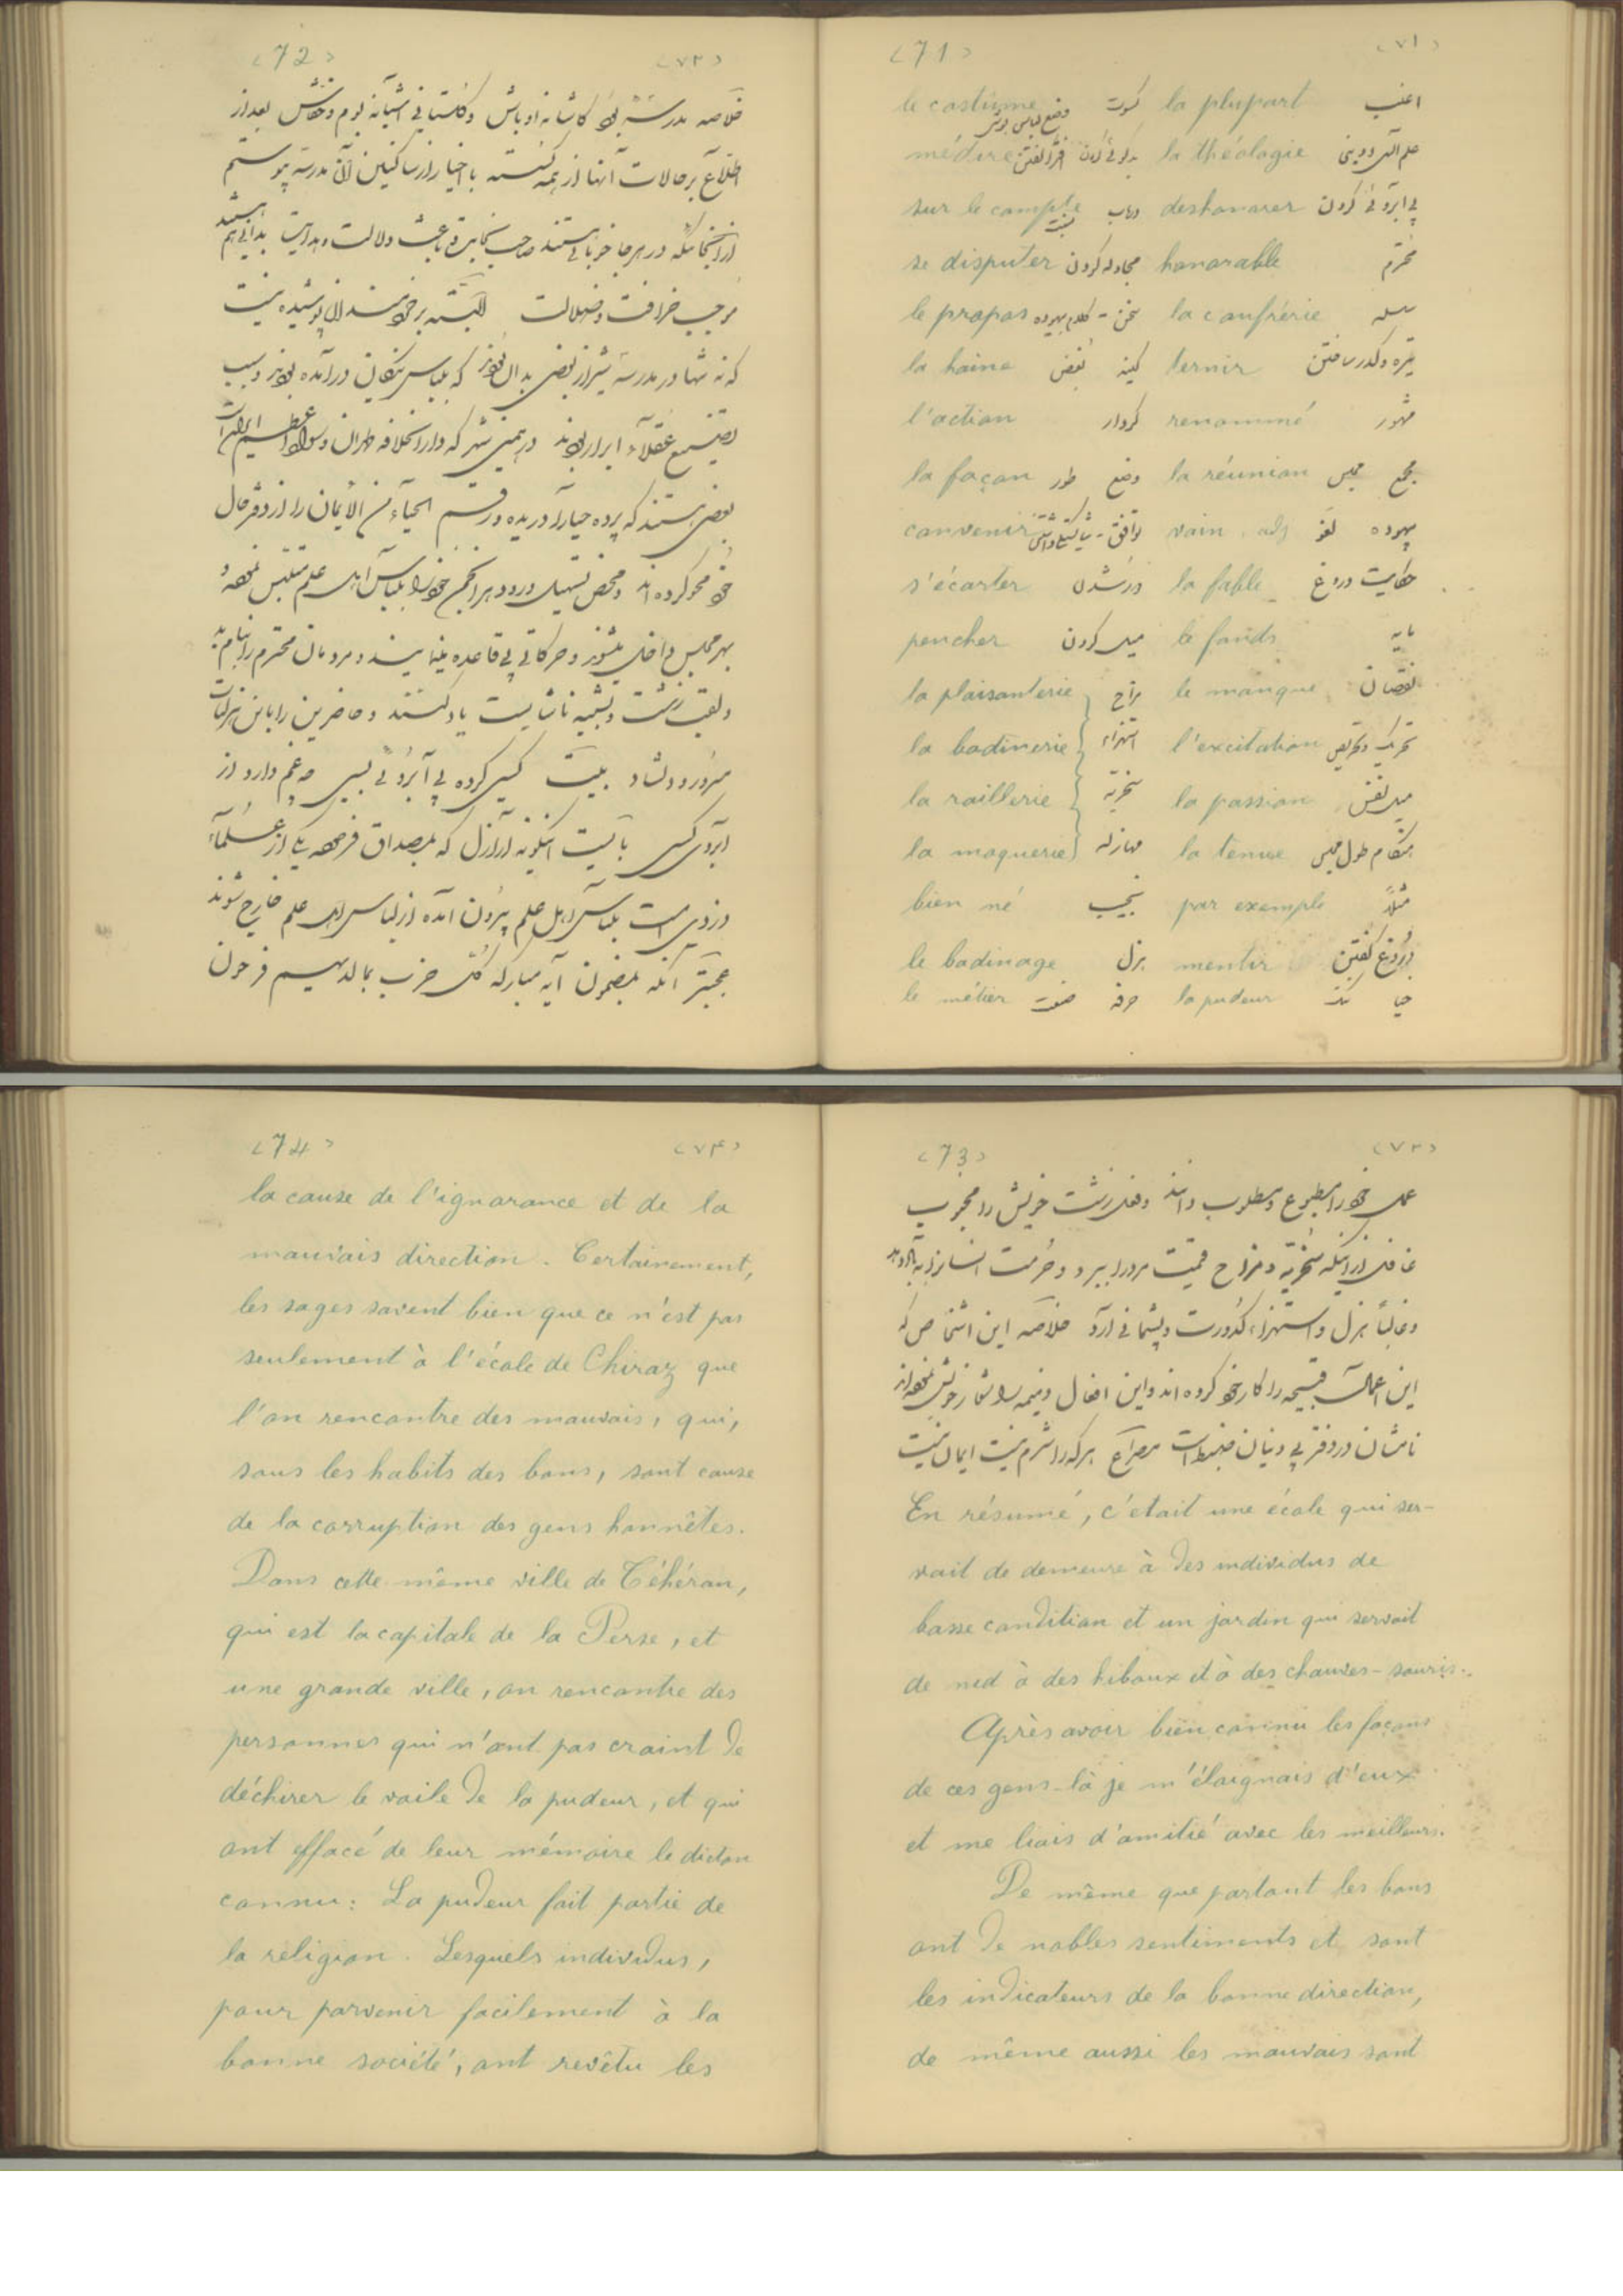 <71> <۷۱>
اغلب la plupart کسوت وضع لباس le costume
علم الهی و دینی la théologie médire
بی آبروئی کردن deshonorer در باب sur le compte
محترم honorable مجادله کردن se disputer
سلسله la confrérie سخن - کلام بیهوده le propos
تیره و کدر ساختن ternir کینه بغض la haine
مشهور renommé کردار l'action
مجمع مجلس la réunion وضع طور la façon
بیهوده لغو vain adj توافق - شایستگی داشتن convenir
حکایت دروغ la fable دور شدن s'écarter
مایه le fonds میل کردن pencher
نقصان le manque مزاح la plaisanterie
تحریک و تحریص l'excitation استهزاء la badinerie
میل نفس la passion سخریّه la raillerie
هنگام طول مجلس la tenue مهازله la moquerie
مثلاً par exemple نجیب bien né
دروغ گفتن mentir هزل le badinage
حیا la pudeur حرفه صنعت le métier
<72> <۷۲>
خلاصه مدرسهٔ بود کاشانه اوباش و گلستانی آشیانه بوم و خفاش بعد از
اطلاع بر حالات آنها از همه گسسته با اخیار از ساکنین آن مدرسه پیوستم
از آنجائیکه در هر جا خوبانی هستند صاحب نجابت و باعث دلالت و هدایت بدانی هم هستند
موجب خرافت و ضلالت البته بر خردمندان پوشیده نیست
که نه تنها در مدرسه شیراز بعضی بدان بودند که بلباس نیکان درآمده بودند و سبب
تضییع عقلاء و ابرار بودند در همین شهر که دارالخلافه طهران و سواد اعظم ایران است
بعضی هستند که پرده حیا را دریده و رقم الحیاء من الأیمان را از دفتر حال
خود محو کرده اند و محض تسهیل ورود هر انجمن خود را بلباس اهل علم متلبس نموده و
بهر مجلس داخل میشوند و حرکاتی بی قاعده مینمایند و مردمان محترم را بنام بد
و لقب زشت و تشبیه ناشایست یاد کنند و حاضرین را باین هزلیات
مسرور و دلشاد بیت کسی کرده بی آبروئی بسی چه غم دارد از
آبروی کسی بایست اینگونه اراذل که بمصداق فرموده یکی از علماء
دزدی است بلباس اهل علم بیرون آمده از لباس اهل علم خارج شوند
عجبتر آنکه بمضمون آیه مبارکه کل حزب بما لدیهم فرحون
<73> <۷۳>
عمل خود را مطبوع و مطلوب دانند و فعل زشت خویش را محبوب
غافل از اینکه سخریّه و مزاح قیمت مرد را ببرد و حرمت انسان را
و غالباً هزل و استهزاء کدورت و پشیمانی آرد خلاصه این اشخاص که
این اعمال قبیحه را کار خود کرده اند و این افعال ذمیمه را شعار خویش نموده اند
نامشان در دفتر بی دینان مضبوط است مصراع هر که را شرم نیست ایمان نیست
En résumé, c'était une école qui ser-
vait de demeure à des individus de
basse condition et un jardin qui servait
de nid à des hiboux et à des chauves-souris.
Après avoir bien connu les façons
de ces gens-là je m'éloignais d'eux
et me liais d'amitié avec les meilleurs.
De même que partout les bons
ont de nobles sentiments et sont
les indicateurs de la bonne direction,
de même aussi les mauvais sont
<74> <۷۴>
la cause de l'ignorance et de la
mauvais direction. Certainement,
les sages savent bien que ce n'est pas
seulement à l'école de Chiraz que
l'on rencontre des mauvais, qui,
sous les habits des bons, sont cause
de la corruption des gens honnêtes.
Dans cette même ville de Téhéran,
qui est la capitale de la Perse, et
une grande ville, on rencontre des
personnes qui n'ont pas craint de
déchirer le voile de la pudeur, et qui
ont effacé de leur mémoire le dicton
connu: La pudeur fait partie de
la religion. Lesquels individus,
pour parvenir facilement à la
bonne société, ont revêtu les